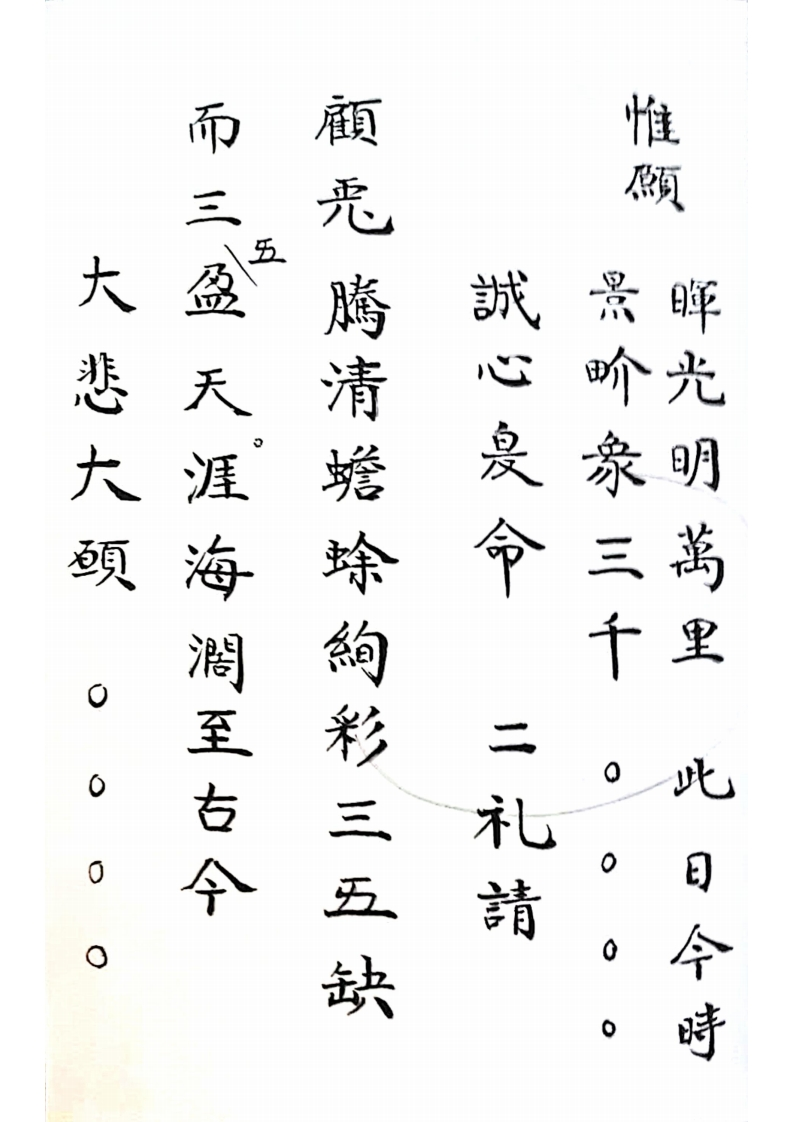 惟願
暉光明萬里 此日今時
景畍衆三千 ○ ○ ○ ○
誠心命 二礼請
顧兎騰清蟾蜍絢彩三五缺
而三五盈天涯。海濶至古今
大悲大願 ○ ○ ○ ○